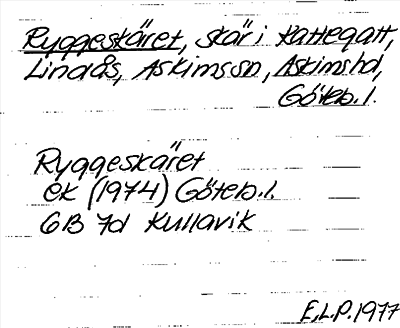 Ryggeskäret, skär i Kattegatt,
Lindås, Askims sn, Askims hd,
Göteb. l.
Ryggeskäret
ek (1974) Göteb. l.
6B 7d Kullavik
E.L.P. 1977